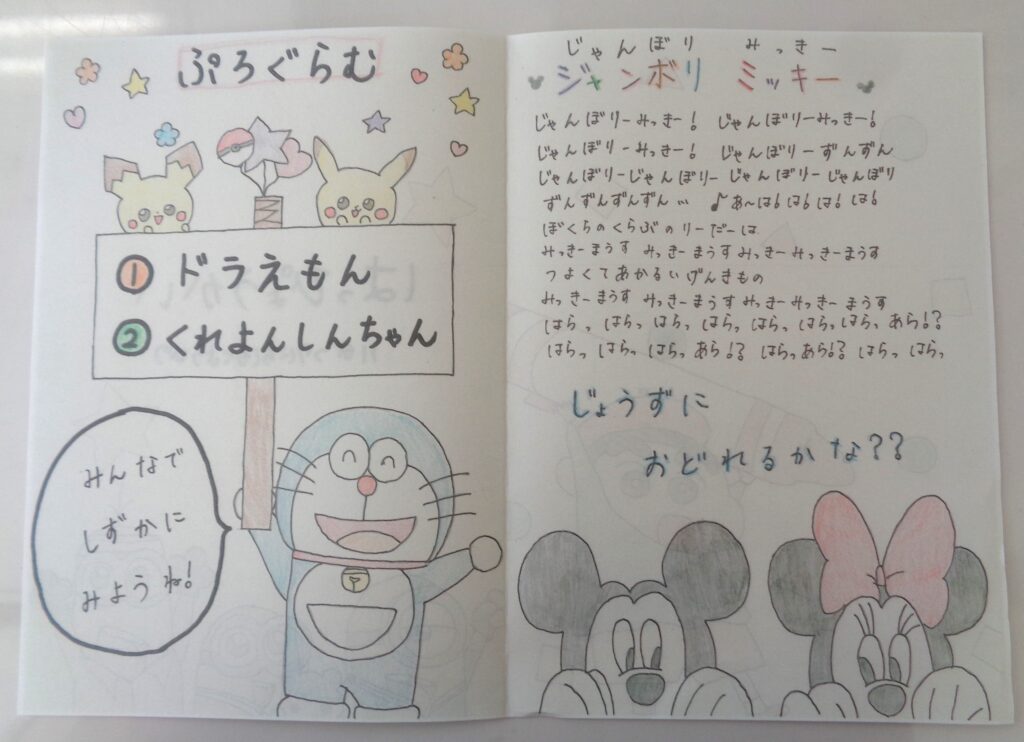 ぷろぐらむ
① ドラえもん
② くれよんしんちゃん
みんなで
しずかに
みようね!
じゃんぼり みっきー
ジャンボリ ミッキー
じゃんぼりーみっきー! じゃんぼりーみっきー!
じゃんぼりーみっきー! じゃんぼりーずんずん
じゃんぼりーじゃんぼりー じゃんぼりーじゃんぼり
ずんずんずんずん… ♪あ〜は!は!は!は!
ぼくらのくらぶのりーだーは
みっきーまうす みっきーまうすみっきーみっきーまうす
つよくてあかるいげんきもの
みっきーまうす みっきーまうすみっきーみっきーまうす
はらっ はらっはらっ はらっ はらっ はらっはらっ あら!?
はらっ はらっ はらっ あら!? はらっあら!? はらっ はらっ
じょうずに
おどれるかな??